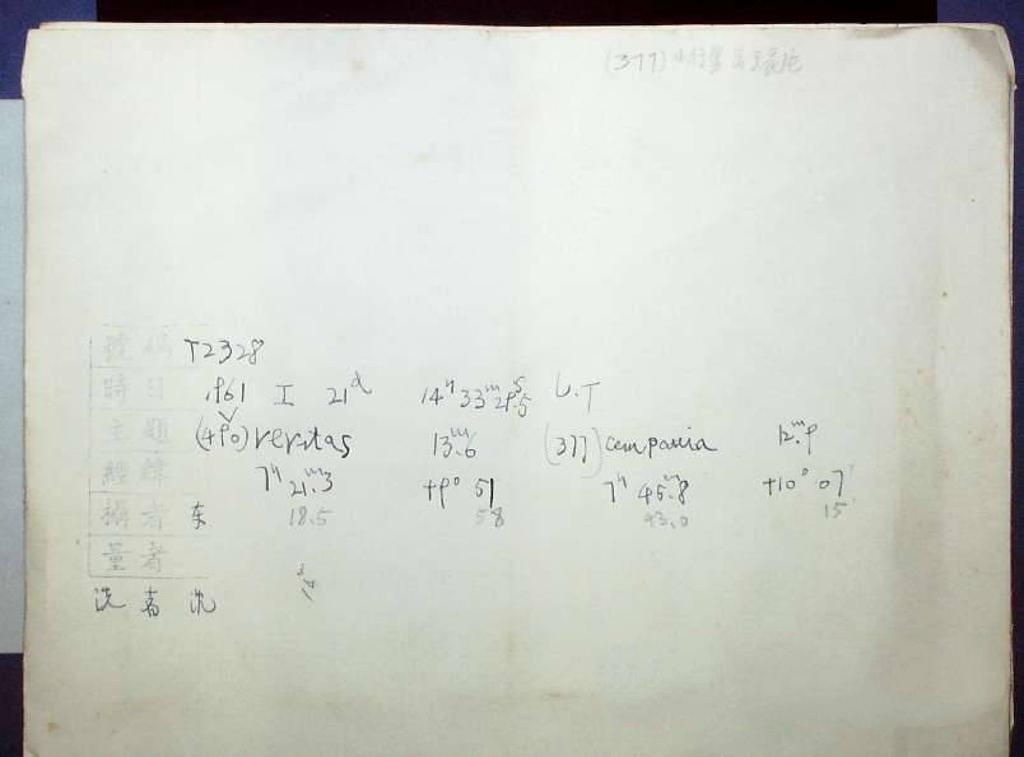 (377) 小行星
號碼 T2328
時日 1961 I 21d 14h 33m 29s.5 U.T
主題 (490) Veritas 13m.6 (377) Campania 12m.9
經緯 7h 21m.3 +9° 51 7h 45m.8 +10° 07'
攝者 东 18.5 58 43.0 15
量者
洗者 沈